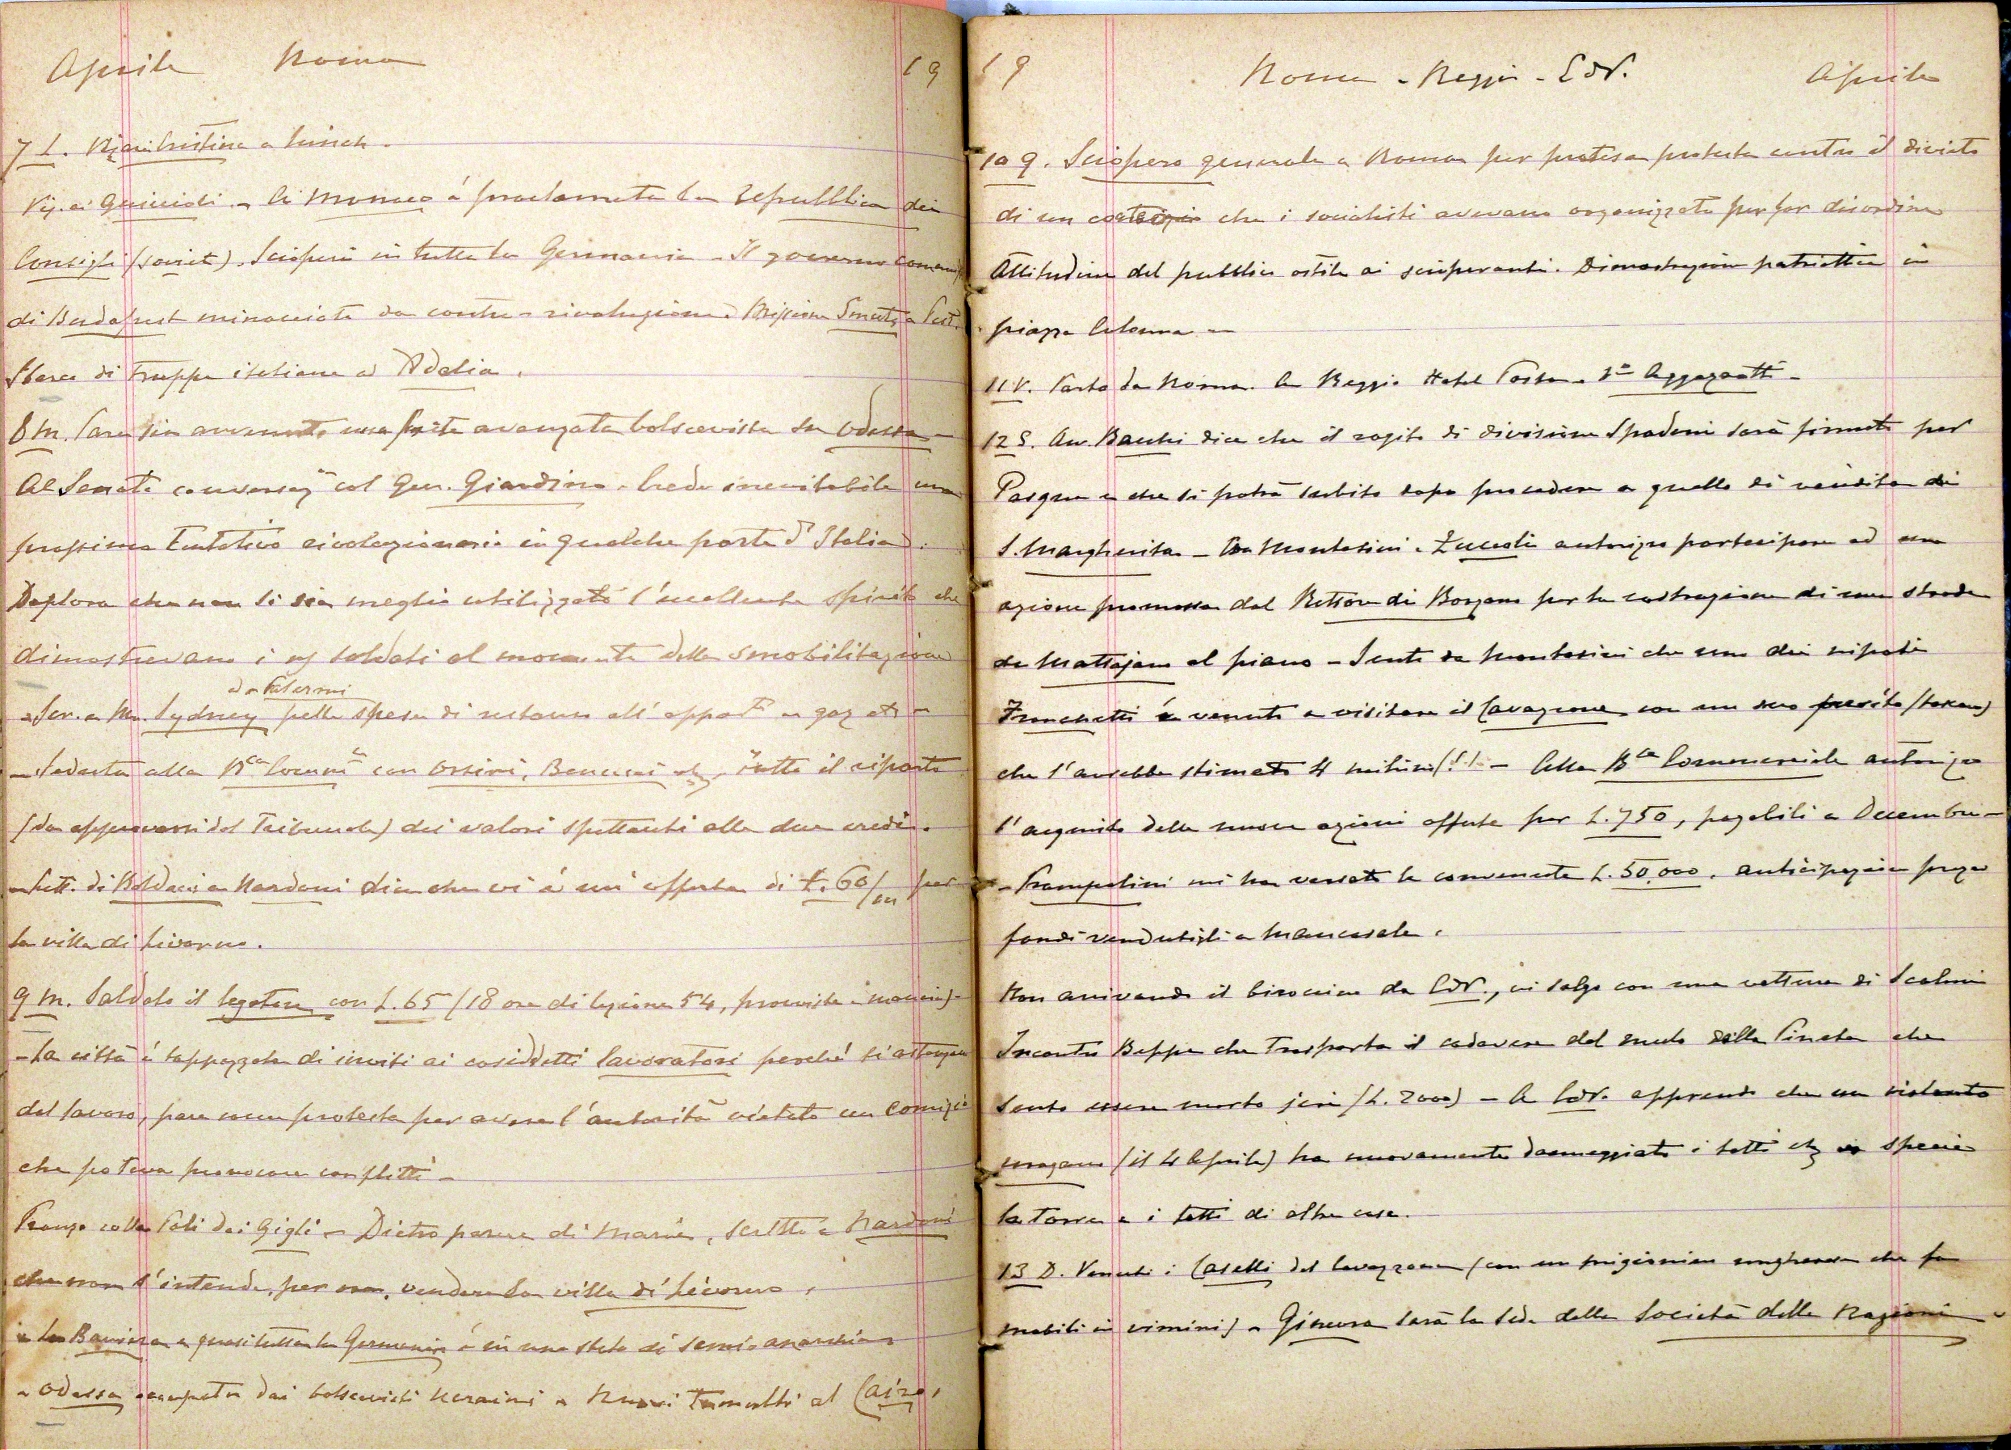 Aprile Roma 19
7 L. a lunch.
Vis. ai Guiccioli. A Monaco é proclamata la repubblica dei
Consigli (soviet). Scioperi in tutta la Germania. Il governo comun.
di Budapest minacciato da contro-rivoluzione. Missione Smuts a Pest.
Sbarco di truppe italiane ad Adalia.
8 M. Pare sia avvenuta una avanzata bolscevista su Odessa
Al Senato conversaz. col Gen. Giardino. Crede inevitabile un
prossimo tentativo rivoluzionario in qualche parte d'Italia.
Deplora che non si sia meglio utilizzato l'eccellente spirito che
dimostravano i ns soldati al momento della smobilitazione
ed a Palermi
- Scr. a Mr. Sydney pelle spese di restauro all' appart. a gaz etc -
- Seduta alla Bca Comm. con Orsini, Bencini etc, tutto il riparto
(da approvarsi dal Tribunale) dei valori spettanti alle due eredi.
- Lett. di Baldacci a Nardoni dice che vi é un' offerta di £. 60/m per
la villa di Livorno.
9 M. Saldato il legatore con L. 65 (18 ore di lezione 54,
- La città é tappezzata di inviti ai cosiddetti lavoratori perché si astengano
dal lavoro, pare come protesta per avere l'autorità vietato un comizio
che poteva provocare conflitti -
Pranzo colla Poli dai Gigli - Dietro parere di Maria, scritto a Nardoni
che non s'intende, per ora, vendere la villa di Livorno.
- La Baviera e quasi tutta la Germania é in uno stato di semi-anarchia -
- Odessa occupata dai bolscevichi ucraini - Nuovi tumulti al Cairo.
19 Roma - Reggio - CdV. Aprile
10 g. Sciopero generale a Roma per protesta contro il divieto
di un comizio che i socialisti avevano organizzato per far disordine
Attitudine del pubblico ostile ai scioperanti. Dimostrazione patriottica in
piazza Colonna -
11 V. Parto da Roma. A Reggio Hotel Posta. Sra Aggazzotti -
12 S. Avv. Bacchi dice che il rogito di divisione Spadoni sarà firmato per
Pasqua e che si potrà subito dopo procedere a quello di vendita di
S. Margherita - Da Montasini. Zuccoli autorizzo partecipare ad una
azione promossa dal Rettore di Borzano per la costruzione di una strada
da Mattajano al piano - Sento da Montasini che uno dei nipoti
Franchetti é venuto a visitare il Cavazzone con un suo perito (toscano)
che l'avrebbe stimato 4 milioni (!!) - Alla Bca Commerciale autorizzo
l'acquisto delle nuove azioni offerte per L. 750, pagabili a Decembre -
- Prampolini mi ha versato le convenute L. 50.000. anticipazione prezzo
fondi vendutigli a Mancasale.
Non arrivando il biroccino da CdV., vi salgo con una vettura di Scalvini
Incontro Beppe che trasporta il cadavere del mulo della Pineta che
sento essere morto jeri (L. 2000) - A CdV. apprendo che un violento
uragano (il 4 Aprile) ha nuovamente danneggiato i tetti etc in specie
la Torre e i tetti di altre case.
13 D. Venuti i Caselli del Cavazzone (con un prigioniero ungherese che fa
mobili in vimini) - Ginevra sarà la sede della Società delle Nazioni -